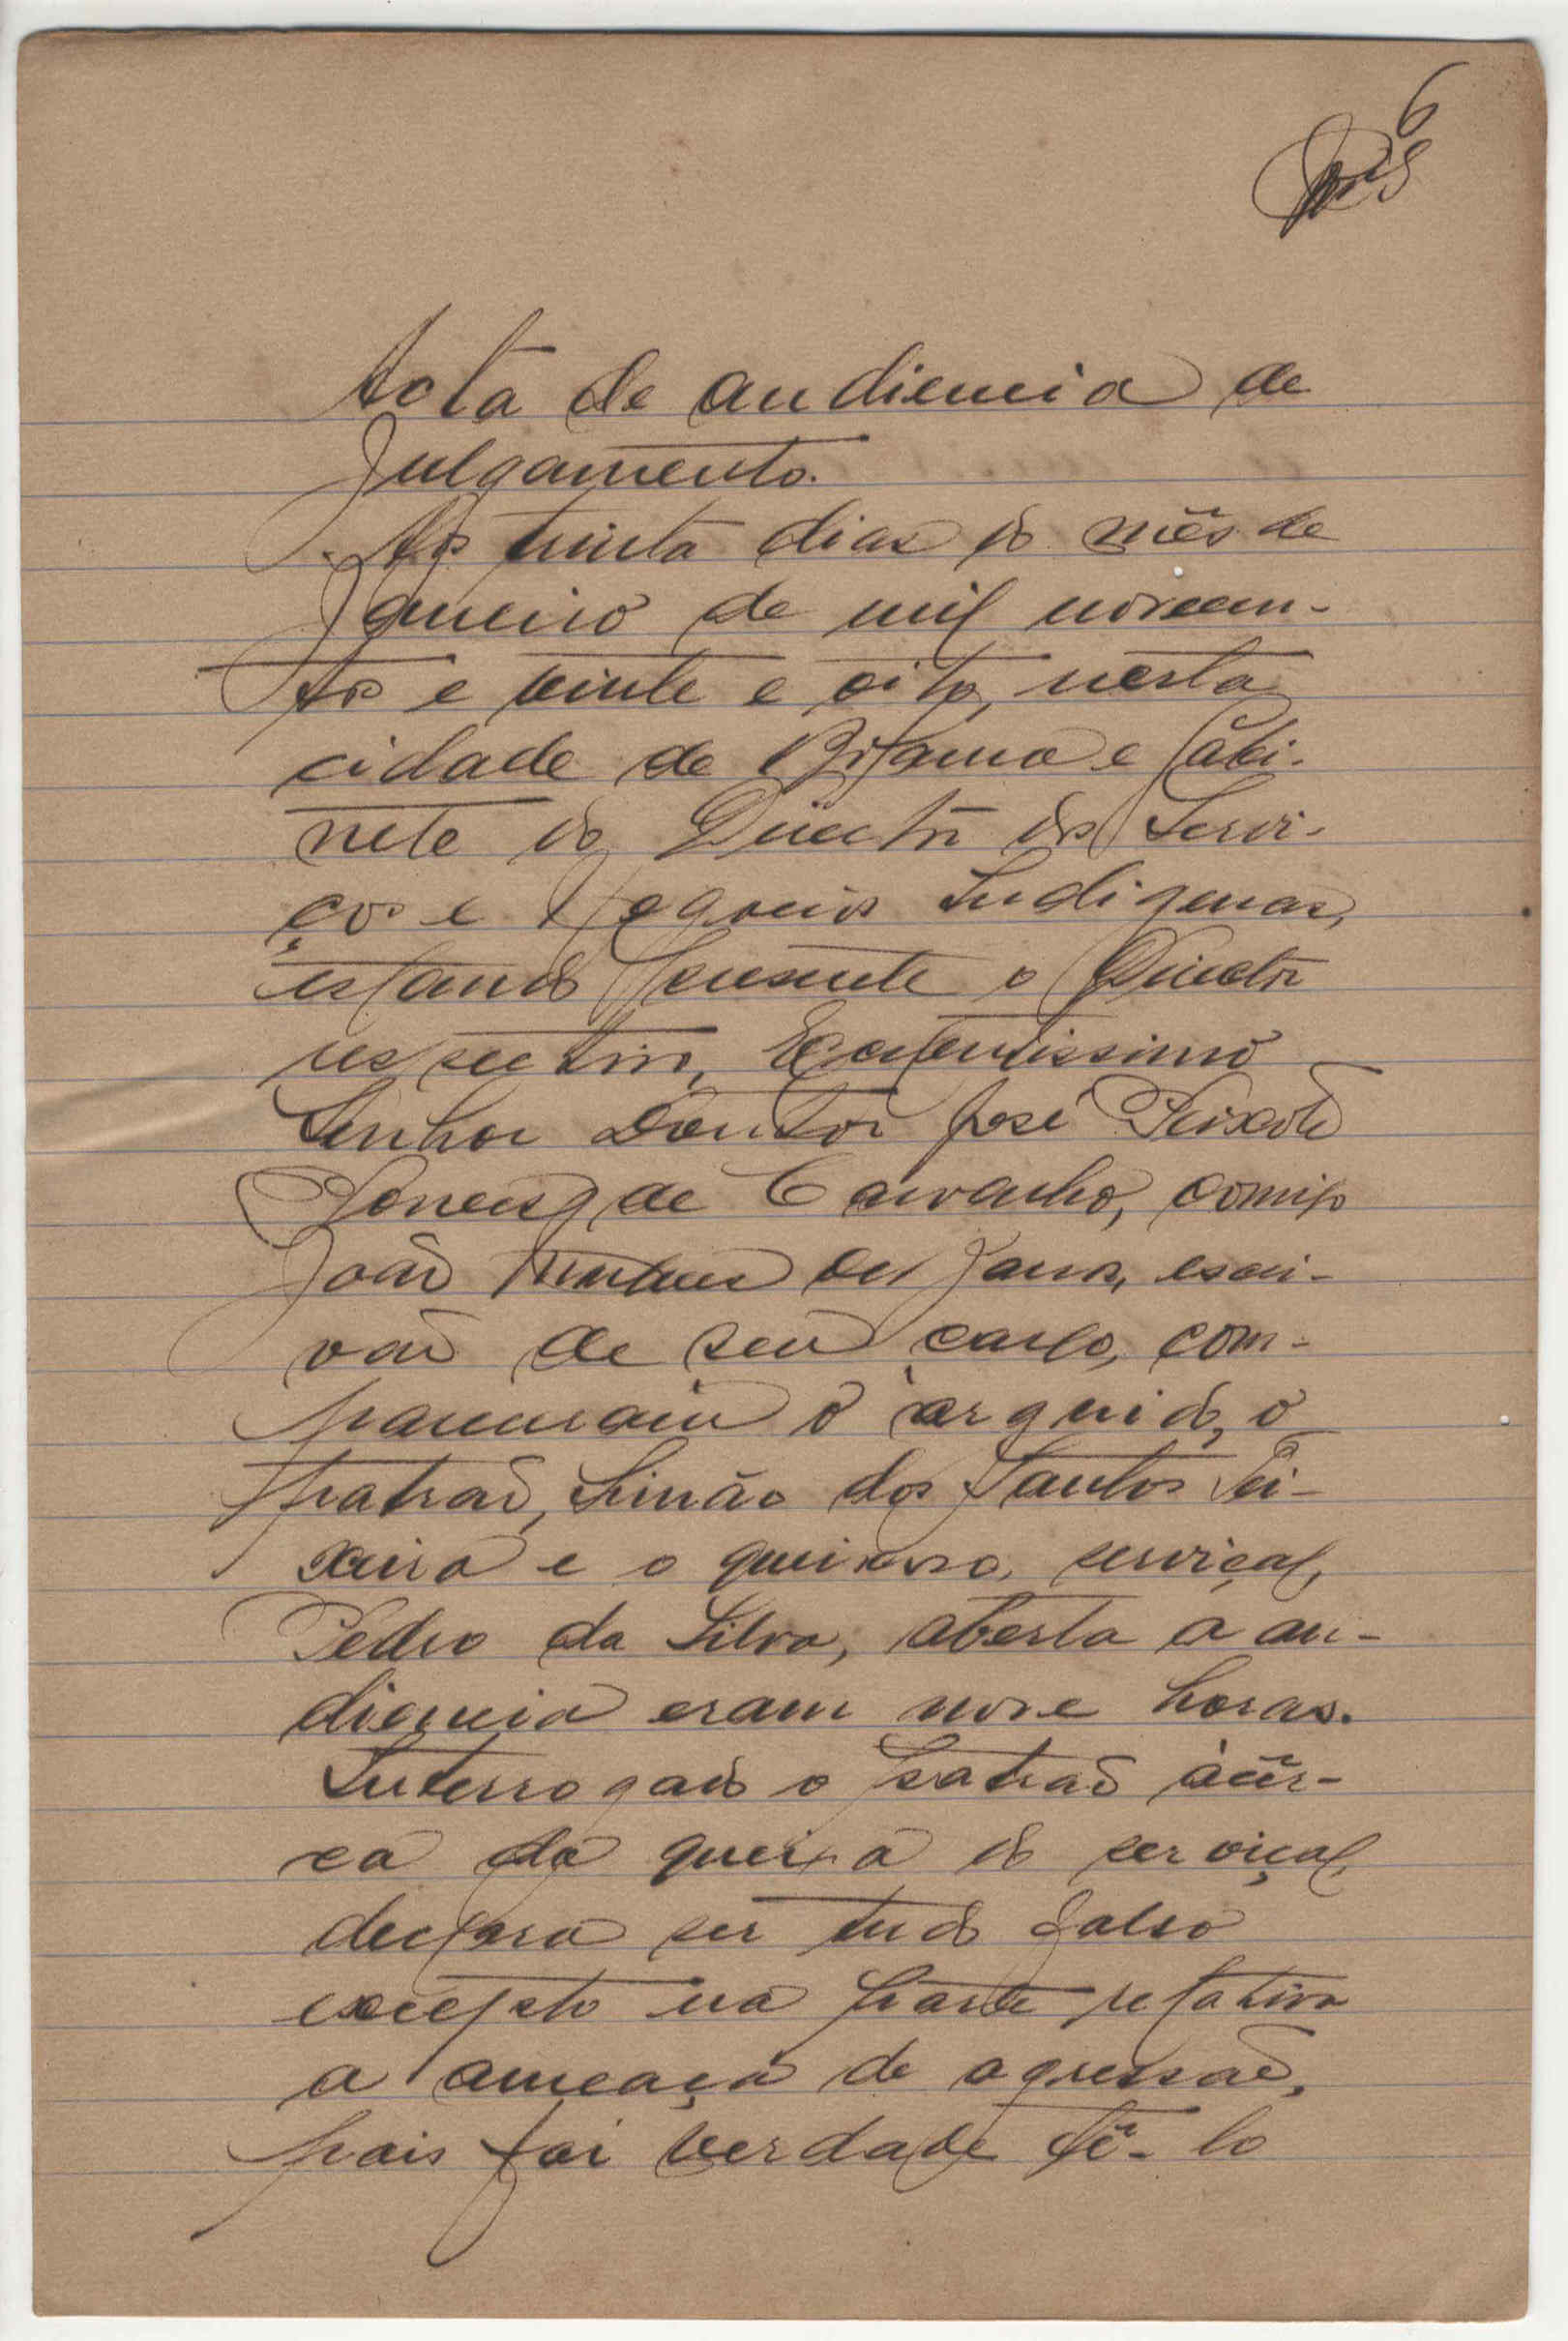 6
Acta de audiencia de
Julgamento.
Aos trinta dias do mês de
Janeiro de mil novecen-
tos e vinte e oito, nesta
cidade de Bolama e Gabi-
nete do Director dos Servi-
ços e Negocios Indigenas,
estando presente o Director
respectivo, Excelentissimo
Senhor Doutor José Peixoto
Ponces de Carvalho, comigo
João de escri-
vão de seu cargo, com-
pareceram o arguido, o
patrão, Simão dos Santos Tei-
xeira e o queixoso, serviçal,
Pedro da Silva, aberta a au-
diencia eram nove horas.
Interrogado o patrão àcêr-
ca da queixa do serviçal,
declara ser tudo falso
excepto na parte relativa
a ameaça de agressão,
pois foi verdade tê-lo